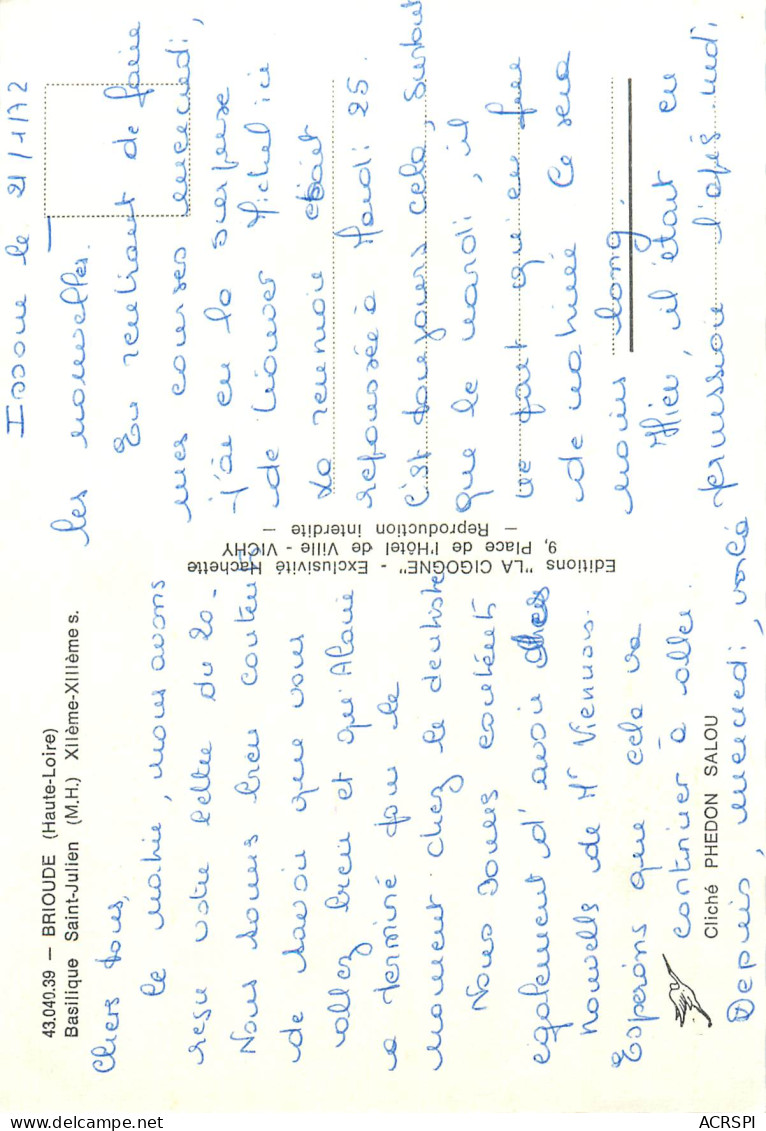 43.040.39 — BRIOUDE (Haute-Loire)
Basilique Saint-Julien (M.H.) XIIème-XIIIème s.
Issoire le 21/1/72
Chers tous,
Ce matin, nous avons
reçu votre lettre du 20-
Nous sommes bien contents
de savoir que vous
allez bien et qu'Alain
a terminé pour le
moment chez le dentiste
Nous sommes contents
également d'avoir des
nouvells de Mr Viennois.
Espérons que cela va
continuer à aller.
Depuis, mercredi, voilà
les nouvelles.
En rentrant de faire
mes courses mercredi,
j'ai eu la surprise
de trouver Michel ici
La réunion était
repoussée à Mardi 25.
C'est toujours cela, surtout
que le mardi, il
ne part qu'en fin
de matinée Ce sera
moins long.
Hier, il était en
permission l'après-midi
Editions "LA CIGOGNE" - Exclusivité Hachette
9, Place de l'Hôtel de Ville - VICHY
— Reproduction interdite —
Cliché PHEDON SALOU
ACRSPI